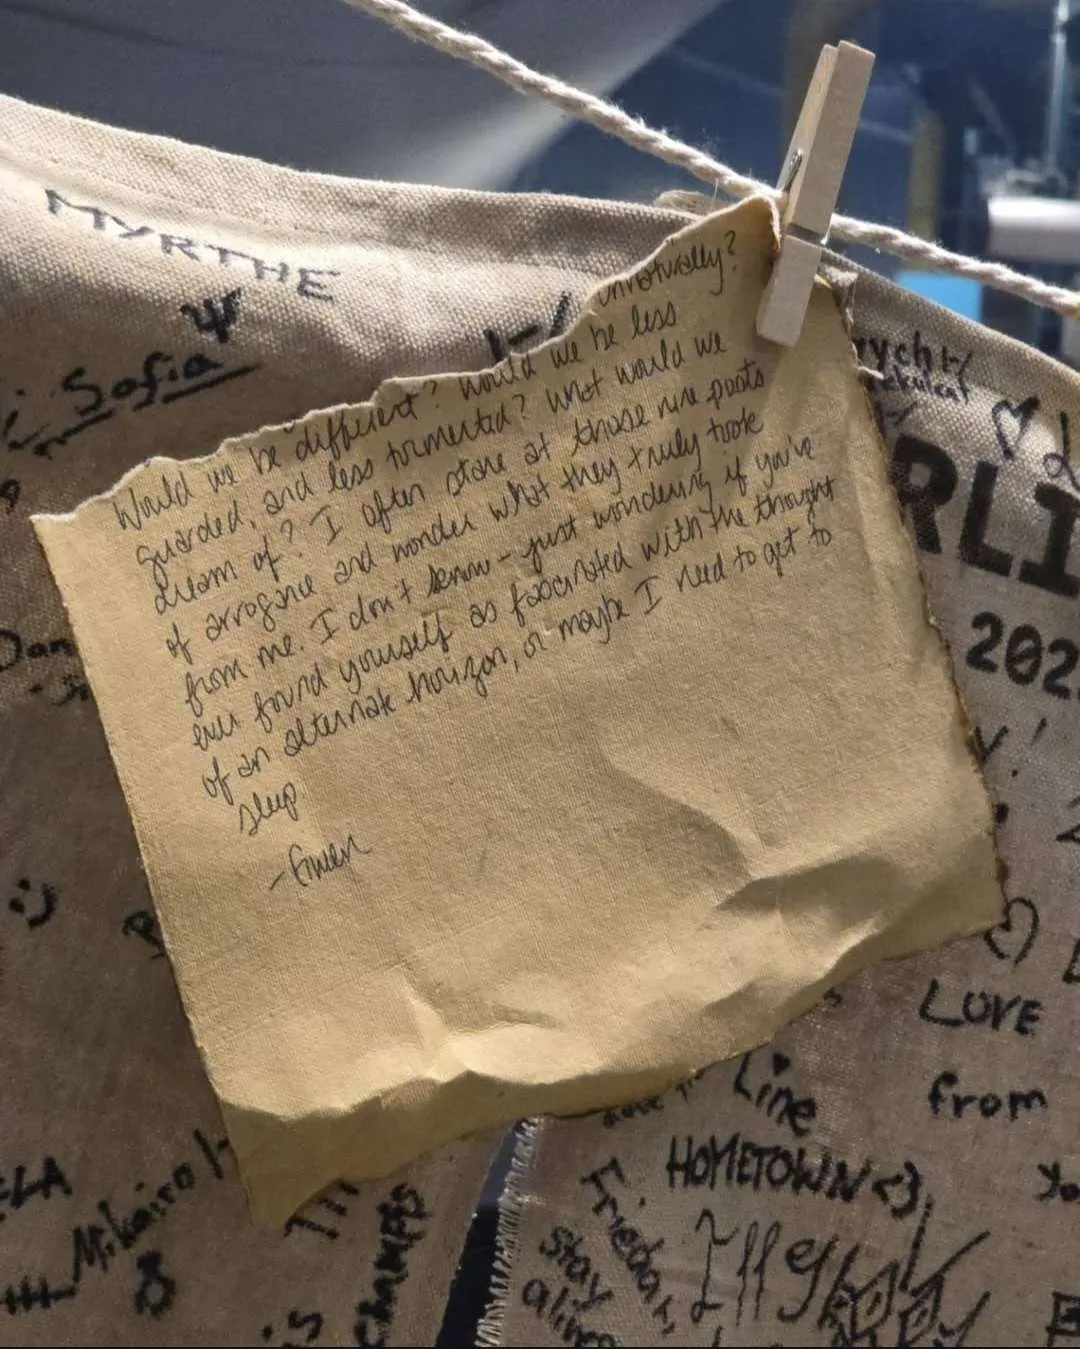 MYRTHE
Sofia
unnaturally?
Would we be different? Would we be less
guarded, and less tormented? What would we
dream of? I often stare at those nine pasts
of arrogance and wonder what they truly took
from me. I don't know – just wondering if you've
ever found yourself as fascinated with the thought
of an alternate horizon, or maybe I need to get to
sleep.
-Gwen
RLI
202
Dan
:)
LOVE
from
Line
HOMETOWN <3
Mikairo
CHAMPS
Stay
alive